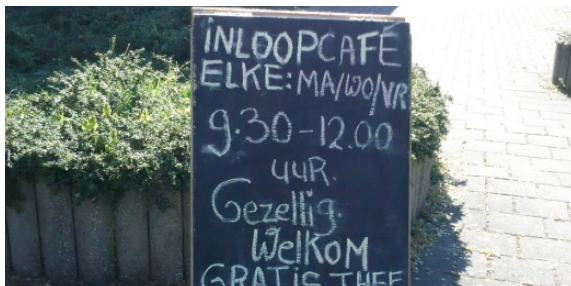 INLOOPCAFÉ
ELKE: MA/WO/VR
9.30-12.00
UUR.
Gezellig.
Welkom
GRATIS THEE